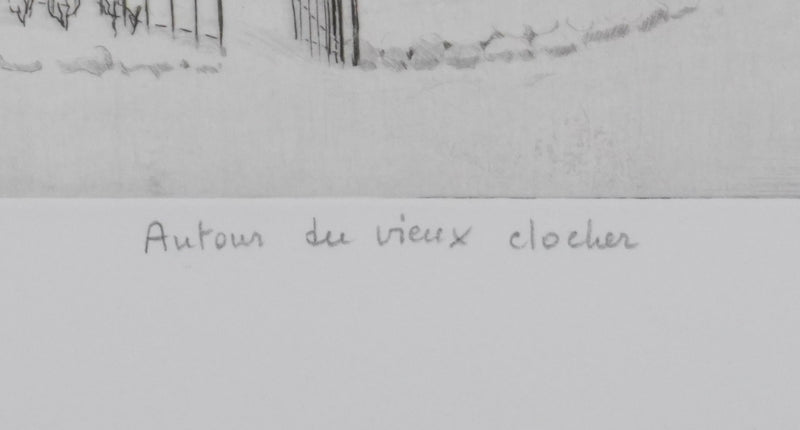 Autour du vieux clocher